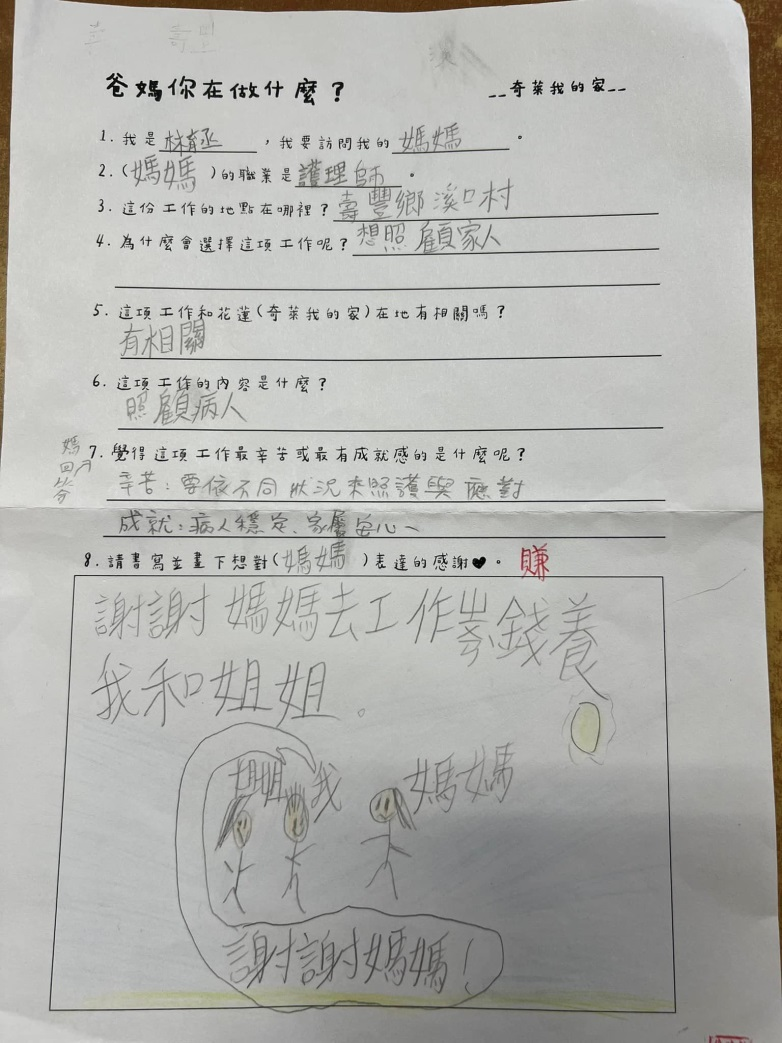 爸媽你在做什麼？
__奇萊我的家__
1. 我是林毓丞，我要訪問我的媽媽。
2. (媽媽)的職業是護理師。
3. 這份工作的地點在哪裡？壽豐鄉溪口村
4. 為什麼會選擇這項工作呢？想照顧家人
5. 這項工作和花蓮(奇萊我的家)在地有相關嗎？
有相關
6. 這項工作的內容是什麼？
照顧病人
7. 覺得這項工作最辛苦或最有成就感的是什麼呢？
媽回答
辛苦：要依不同狀況來照護與應對
成就：病人穩定、家屬安心～
8. 請書寫並畫下想對(媽媽)表達的感謝♥。
賺
謝謝媽媽去工作 錢養
我和姐姐。
姐姐 我 媽媽
謝謝媽媽！